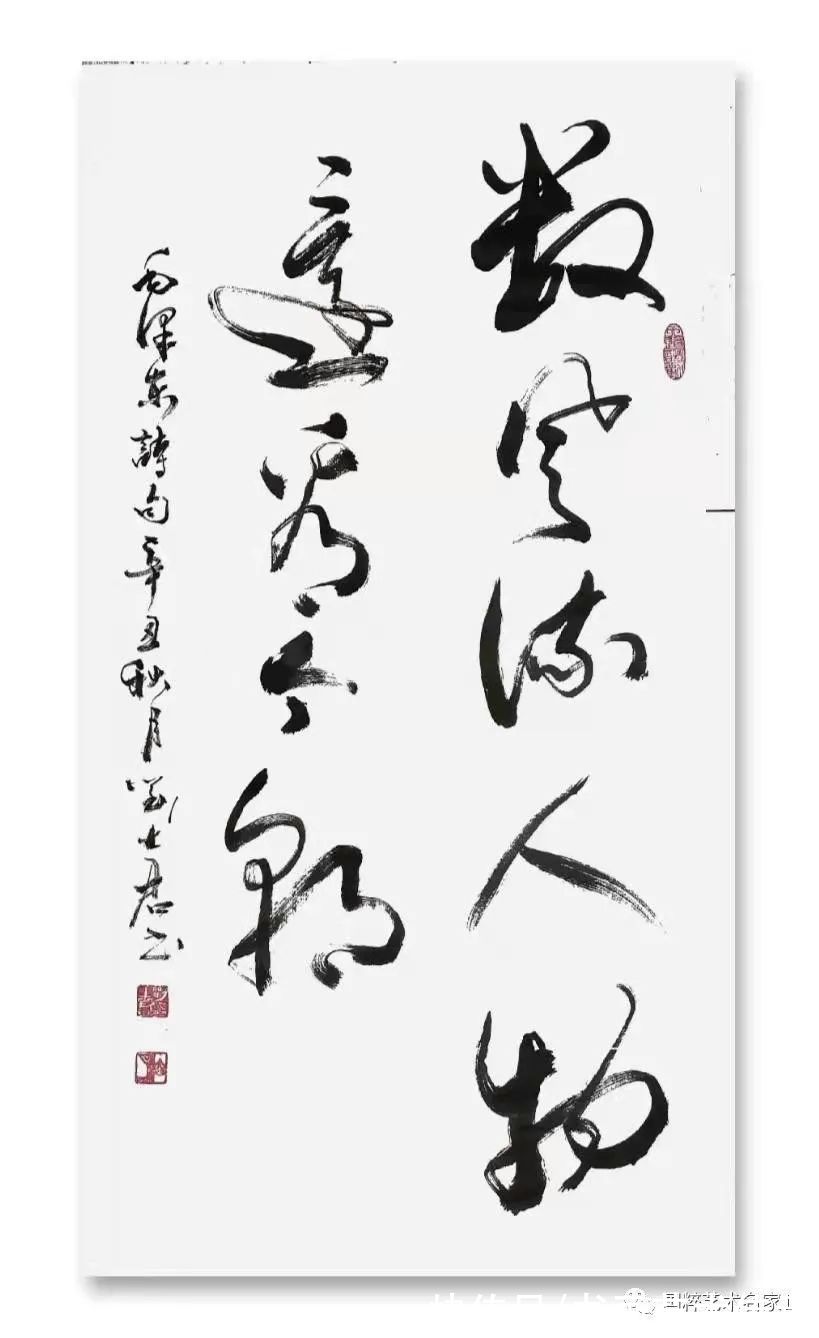 数风流人物
还看今朝
毛泽东詩句辛丑秋月劉
君书
国粹艺术名家1